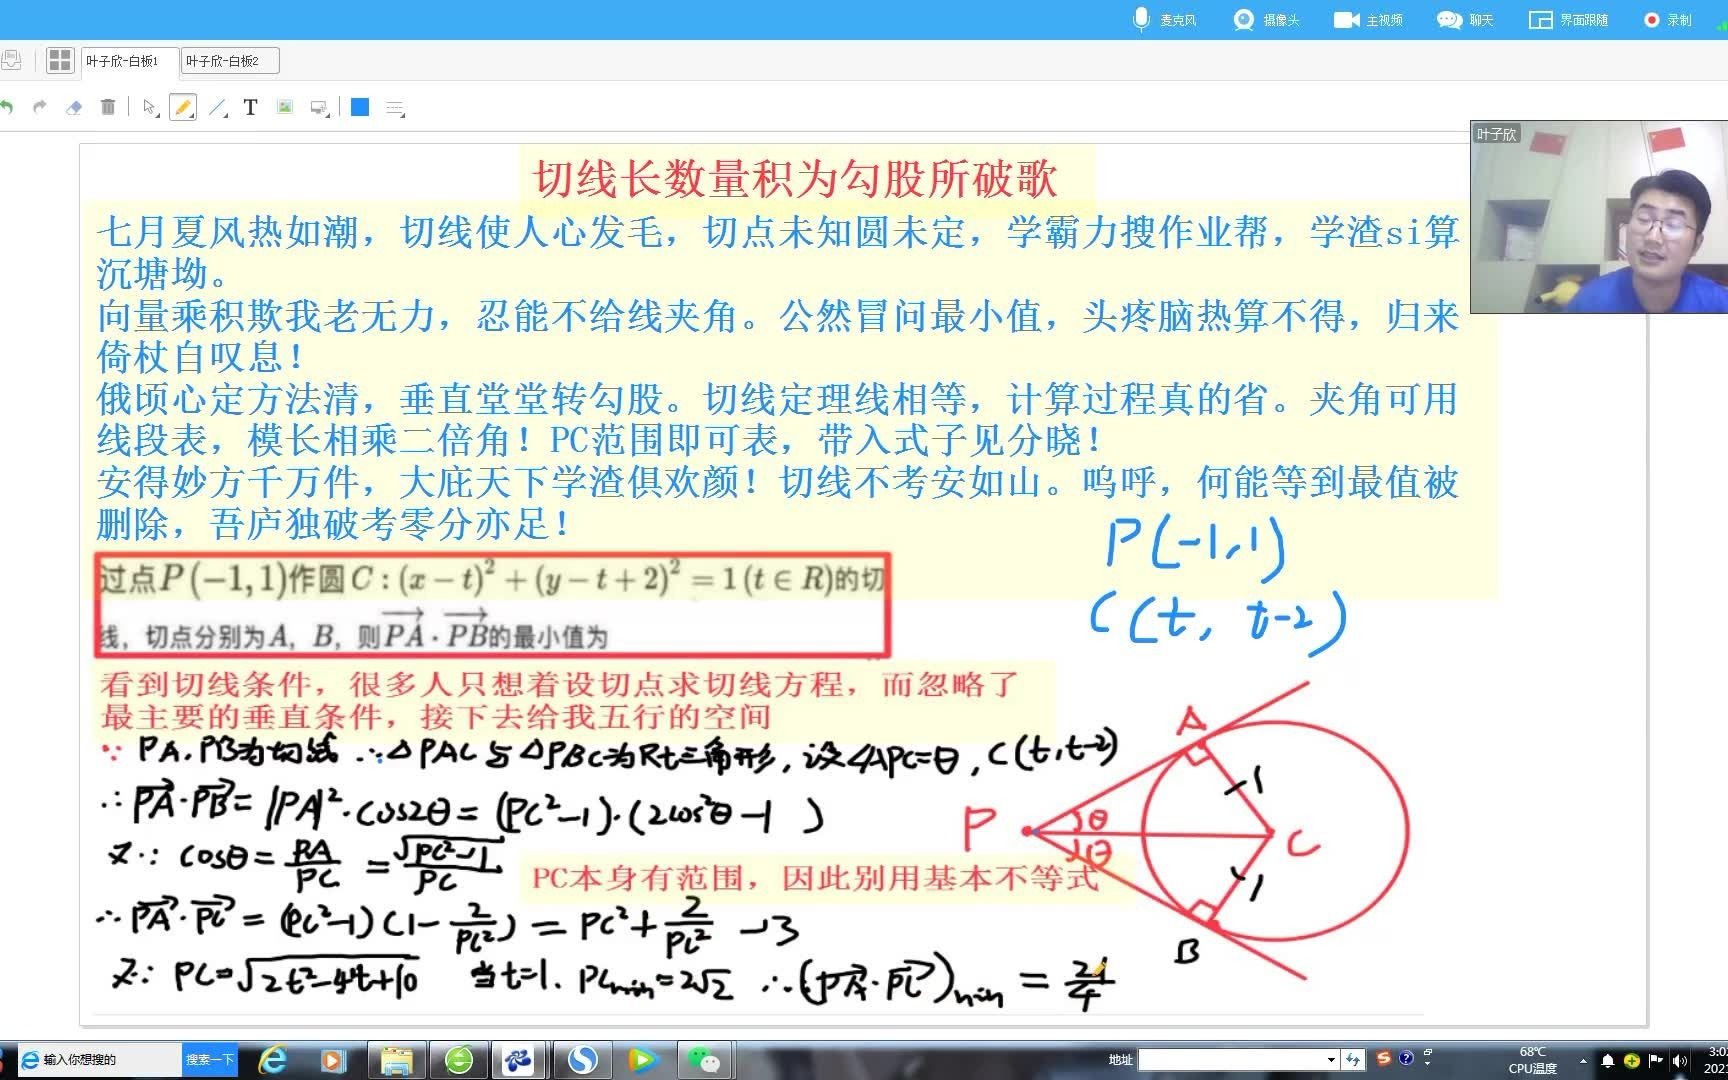 麦克风 摄像头 主视频 聊天 界面跟随 录制
叶子欣-白板1 叶子欣-白板2
T
叶子欣
切线长数量积为勾股所破歌
七月夏风热如潮，切线使人心发毛，切点未知圆未定，学霸力搜作业帮，学渣si算
沉塘坳。
向量乘积欺我老无力，忍能不给线夹角。公然冒问最小值，头疼脑热算不得，归来
倚杖自叹息！
俄顷心定方法清，垂直堂堂转勾股。切线定理线相等，计算过程真的省。夹角可用
线段表，模长相乘二倍角！PC范围即可表，带入式子见分晓！
安得妙方千万件，大庇天下学渣俱欢颜！切线不考安如山。呜呼，何能等到最值被
删除，吾庐独破考零分亦足！
P(-1,1)
C(t, t-2)
过点P(−1,1)作圆C:(x−t)²+(y−t+2)²=1(t∈R)的切
线，切点分别为A，B，则\overrightarrow{PA}·\overrightarrow{PB}的最小值为
看到切线条件，很多人只想着设切点求切线方程，而忽略了
最主要的垂直条件，接下去给我五行的空间
∵ PA.PB为切线 ∴△PAC与△PBC为Rt三角形，设∠APC=θ，C(t,t-2)
∴\overrightarrow{PA}·\overrightarrow{PB}=|PA|²·cos2θ=(PC²-1)·(2cos²θ-1)
又∵ cosθ=\frac{PA}{PC}=\frac{\sqrt{PC²-1}}{PC}
PC本身有范围，因此别用基本不等式
∴\overrightarrow{PA}·\overrightarrow{PC}=(PC²-1)(1-\frac{2}{PC²})=PC²+\frac{2}{PC²}-3
又∵ PC=\sqrt{2t²-4t+10} 当t=1. PCmin=2√2 ∴(\overrightarrow{PA}·\overrightarrow{PC})min=\frac{21}{4}
A
1
P θ C
θ
1
B
输入你想搜的 搜索一下
地址
68℃
CPU温度